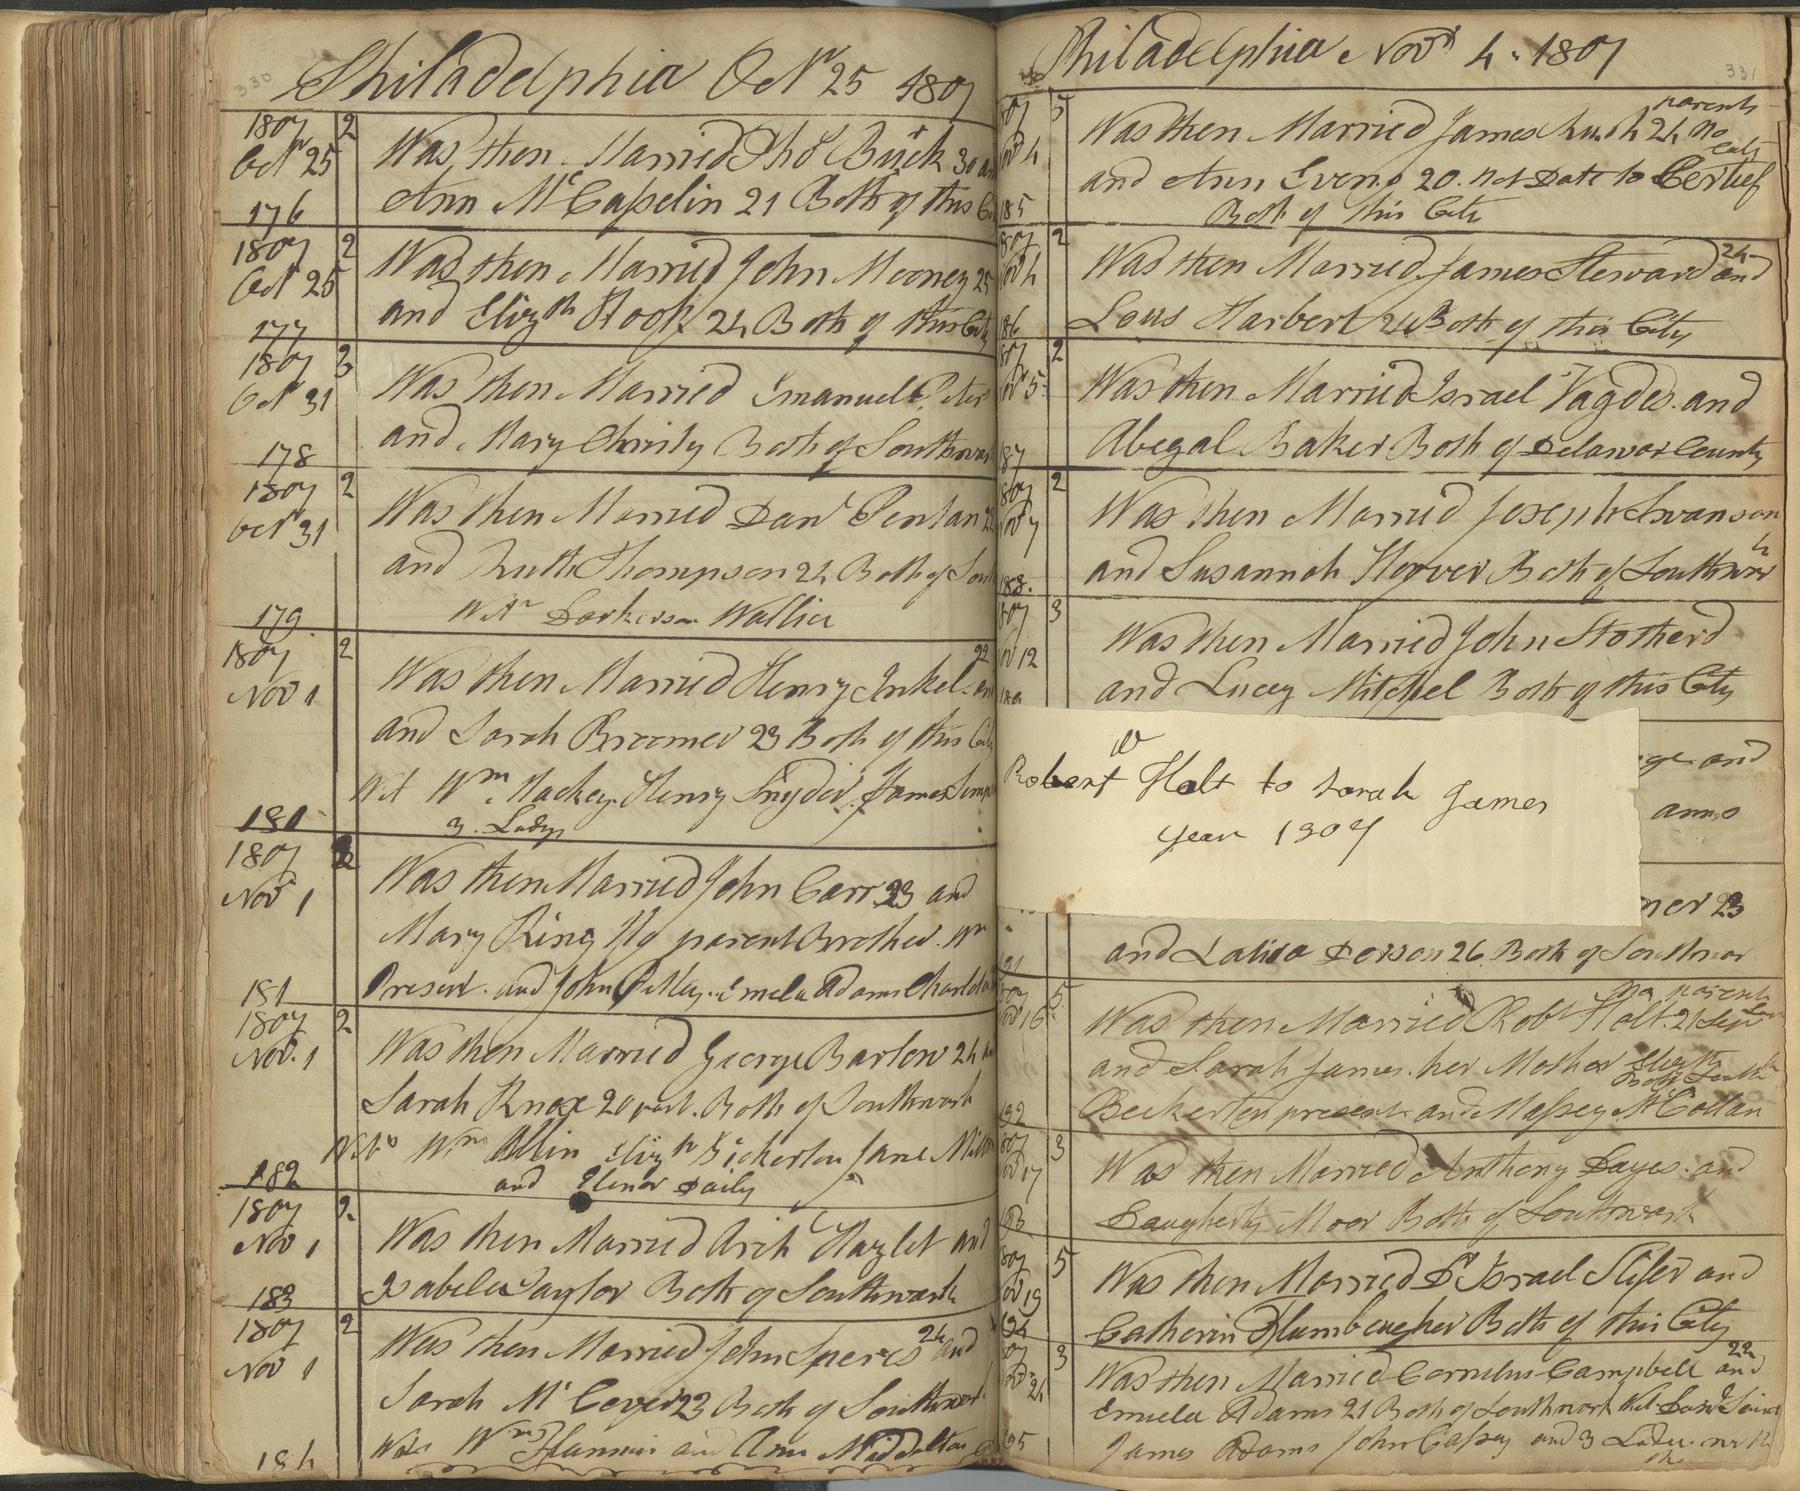 330
Philadelphia Octr 25 1807
1807 2
Octr 25
Was then Married Tho Buck 30 an
Ann McCaselin 21 Both of this C
176
1807 2
Oct 25
Was then Married John Mooney 25
and Elizth Hook 24 Both of this City
177
1807 3
Oct 31
Was then Married Emanuel Peters
and Mary Christy Both of Southwar
178
1807 2
Oct 31
Was then Married Danl Penton 2
and Ruth Thompson 24 Both of Sou
Witn Wallice
179
1807 2
Nov 1
22
Was then Married Henry Inkel an
and Sarah Broomer 23 Both of this Cit
Wit Wm Mackey Henry Snyder James Simp
3 Ladys
180
1807 2
Nov 1
Was then Married John Carr 23 and
Mary King No parent Brother Wm
Present and John Emela Adams
181
1807 2
Nov. 1
Was then Married George Barlow 24 an
Sarah Knox 20 Both of Southwark
Wits Wm Allin Elizh Bickerton Jane
and Elenor Daily
182
1807 2
Nov 1
Was then Married Arch Hazlet and
Isabela Taylor Both of Southwark
183
1807 2
Nov 1
Was then Married John Speres 24 and
Sarah McCever 23 Both of Southwark
Wits Wm Flannin and Ann Middelton
184
331
Philadelphia Novr 4. 1807
parents
807 5
Was then Married James 24 no
ov 4
and Ann Evens 20. not Date to Certief
185
Both of this City
807 2
24
Was then Married James Steward and
ov 4
Lous Harbert 24 Both of this City
86
807 2
ov 5
Was then Married Israel Vagdes and
Abegal Baker Both of Delawar County
87
807 2
ov 7
Was then Married Joseph Swanson
and Susannah Hoover Both of Southwark
188
807 3
ov 12
Was then Married John Stotherd
and Lucey Mitchel Both of this City
189
W
Robert Holt to Sarah James
year 1807
ge and
anno
ner 23
and Lavisa Dorson 26 Both of Southwar
807 5
no parents
ov 16
Was then Married Robt Holt 21
and Sarah James her Mother
Both South
Beckerten present and Massey McCollan
192
807 3
ov 17
Was then Married Anthony Dayes and
Daugherty Moor Both of Southwark
193
807 5
Was then Married Dr Israel Slifer and
ov 19
Catherin Flumbaugher Both of this City
194
807 3
22
Was then Married Cornelus Campbell and
ov 24
Emela Adams 21 Both of Southwark Wit
James Adams John Casey and 3 Ladies
195